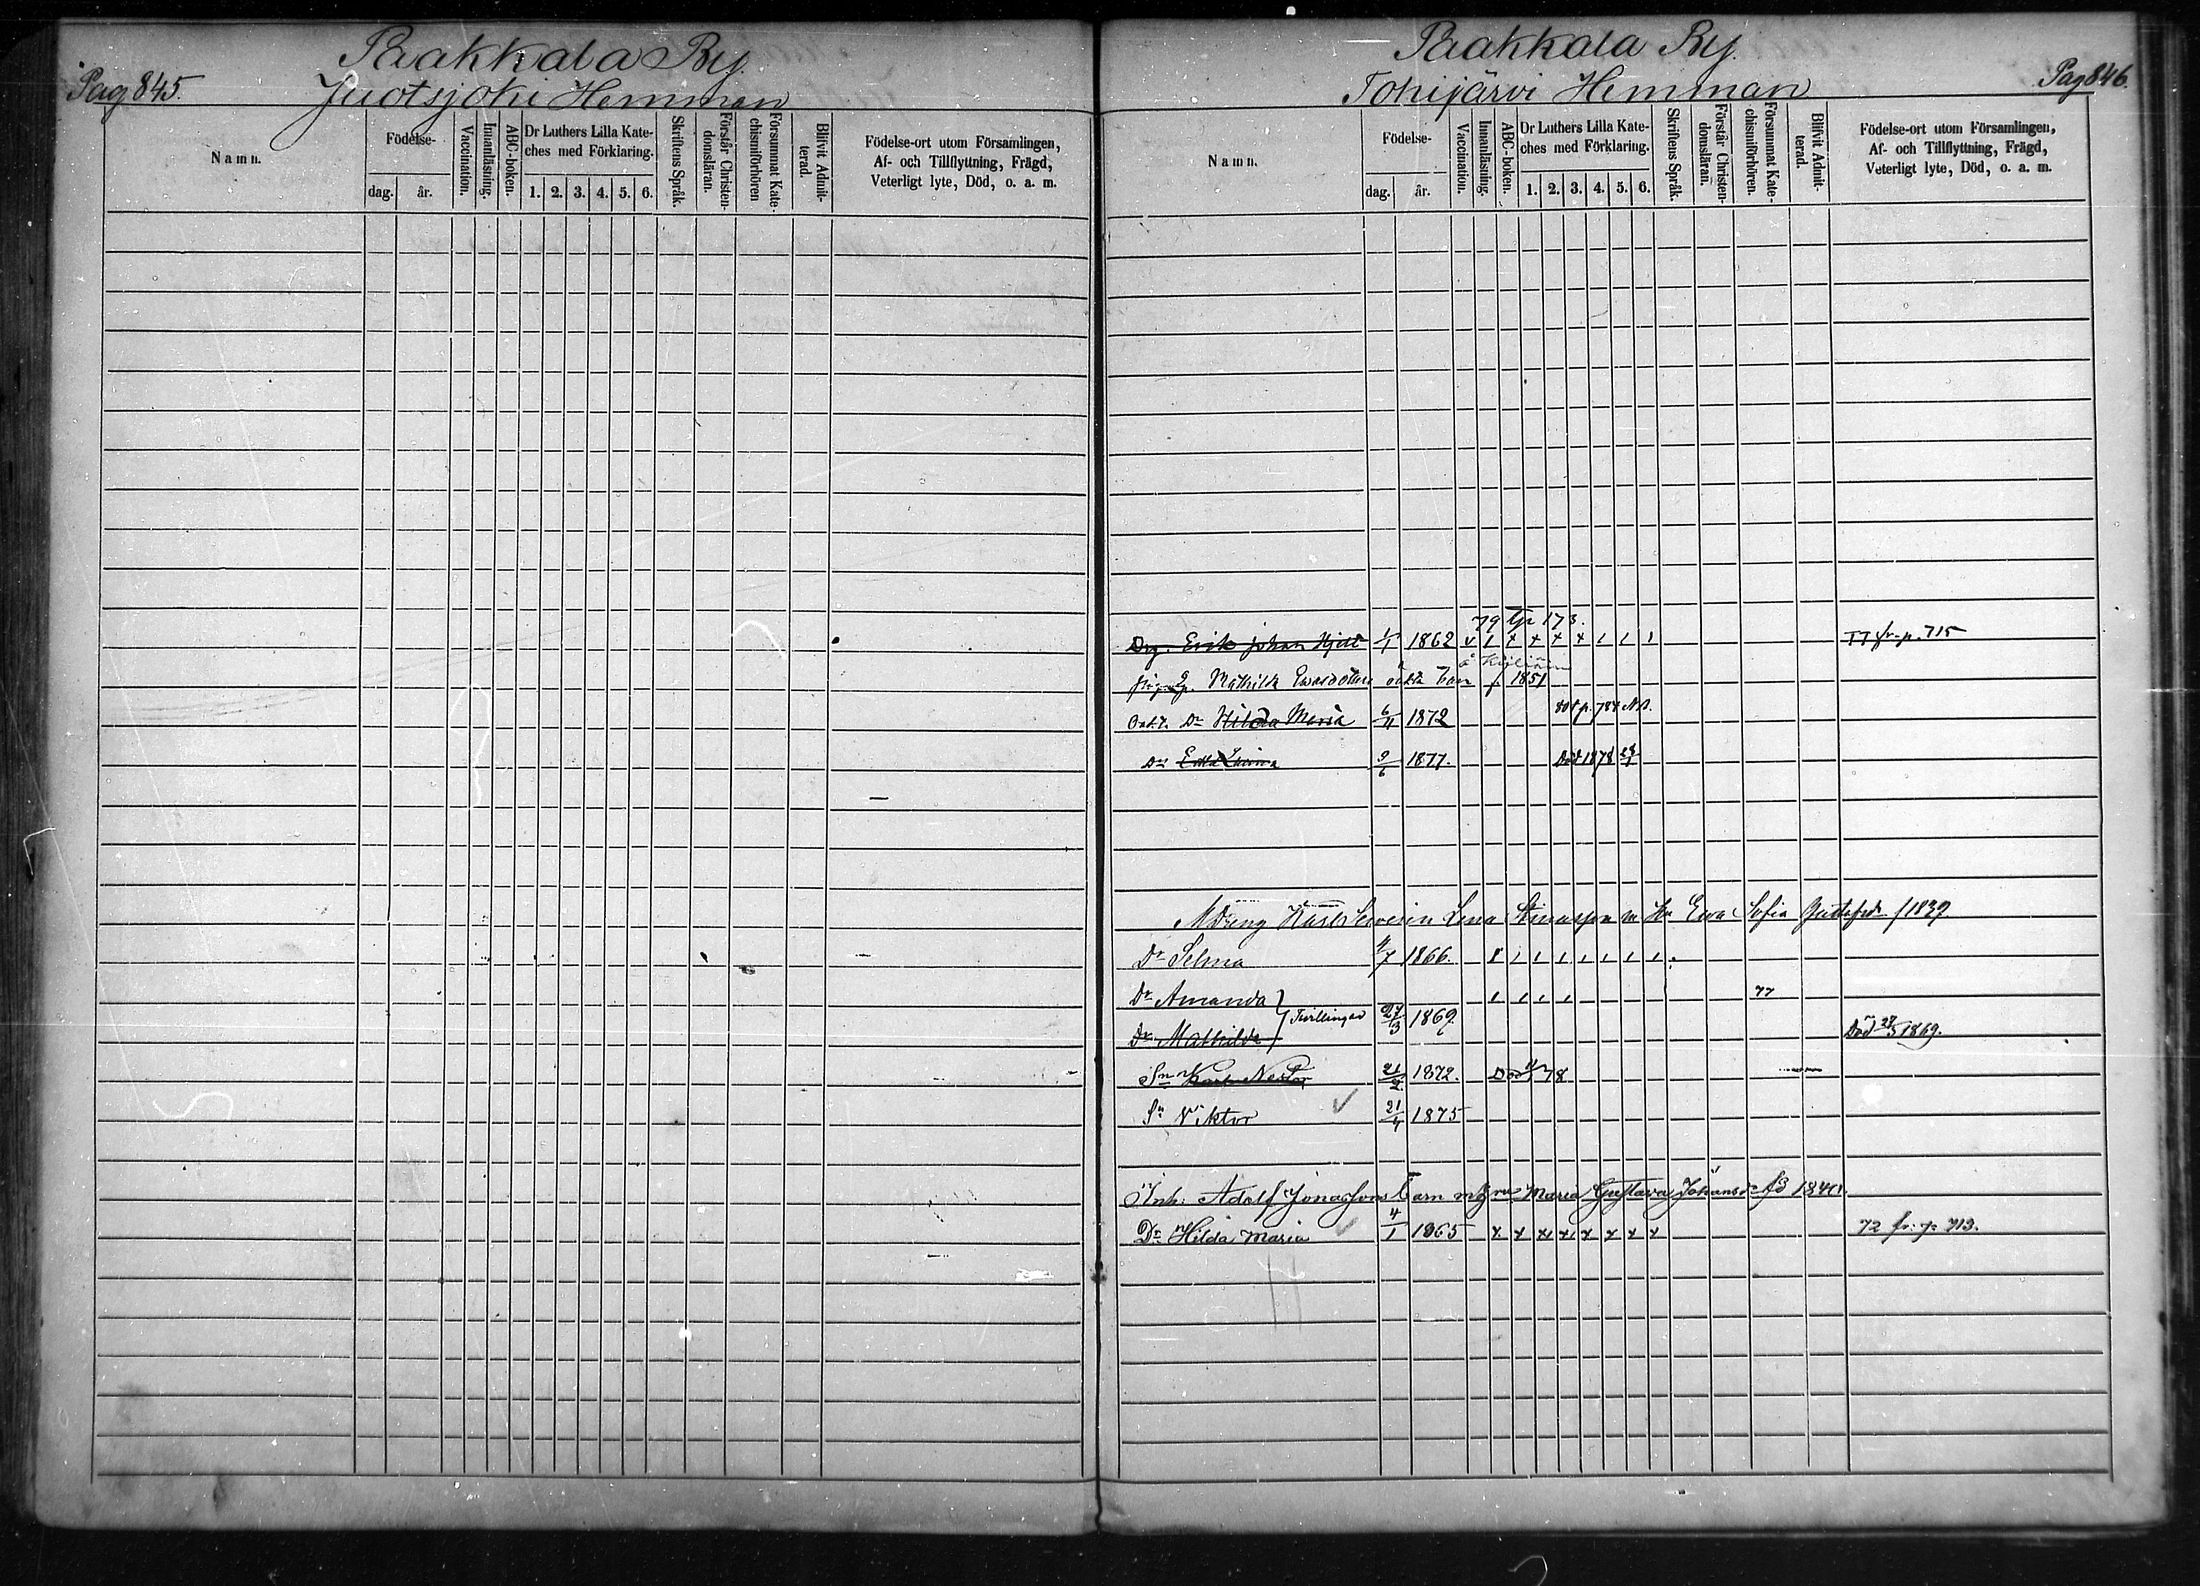 Pag 845.
Paakkala By.
Juotsjoki Hemman
Namn.
Födelse-
dag.
år.
Vaccination.
Innanläsning.
ABC-boken.
Dr Luthers Lilla Kate-
ches med Förklaring.
1. 2. 3. 4. 5. 6.
Skriftens Språk.
Förstår Christen-
domsläran.
Försummat Kate-
chismiförhören
Blifvit Admit-
terad.
Födelse-ort utom Församlingen,
Af- och Tillflyttning, Frägd,
Veterligt lyte, Död, o. a. m.
Paakkala By.
Pag 846.
Tohijärvi Hemman
Namn.
Födelse-
dag.
år.
Vaccination.
Innanläsning.
ABC-boken.
Dr Luthers Lilla Kate-
ches med Förklaring.
1. 2. 3. 4. 5. 6.
Skriftens Språk.
Förstår Christen-
domsläran.
Försummat Kate-
chismiförhören.
Blifvit Admit-
terad.
Födelse-ort utom Församlingen,
Af- och Tillflyttning, Frägd,
Veterligt lyte, Död, o. a. m.
79 173.
Drg. Erik Johan 1862 77 fr. p. 715
Mathilda oäkta barn f. 1851
Dr Hilda Maria 6/11 1872 p. 784
Dr 9/6 1877. Död 1878
Karl Lena m Ewa Sofia f 1839.
Dr Selma 4/7 1866.
Dr Amanda 77
Tvillingar 27/3 1869.
Dr Mathilda Död 1869.
Sn Karl Nestor 21/2 1872. Död 78
Sn Viktor 21/4 1875
Inh: Adolf Jonassons barn Maria Gustava
Dr Hilda Maria 4/1 1865 72 fr: p 713.